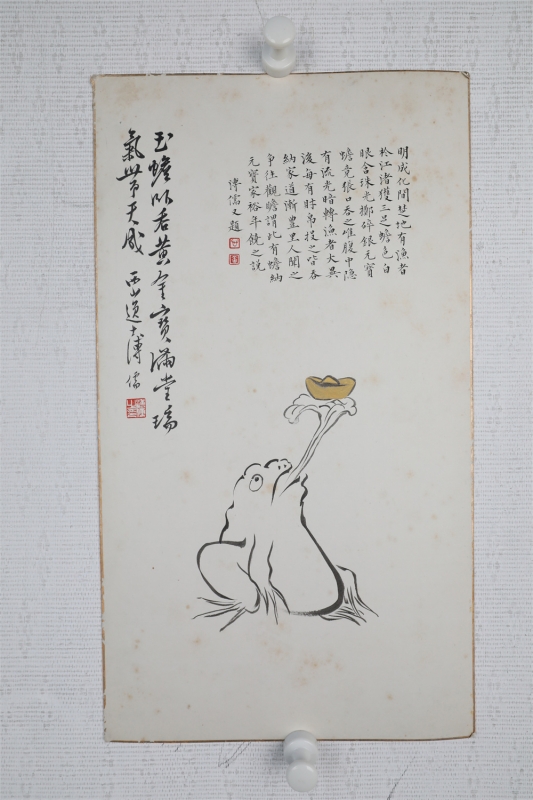 明成化間楚地有漁者
於江渚獲三足蟾色白
眼含珠光擲碎銀元寶
蟾竟張口吞之雖腹中隱
有流光暗轉漁者大異
後每有財帛投之皆吞
納家道漸豊里人聞之
爭往觀瞻謂此有蟾納
元寶家裕年饒之說
溥儒又題
玉蟾舌黃金寶滿堂瑞
氣天成 西山逸士溥儒